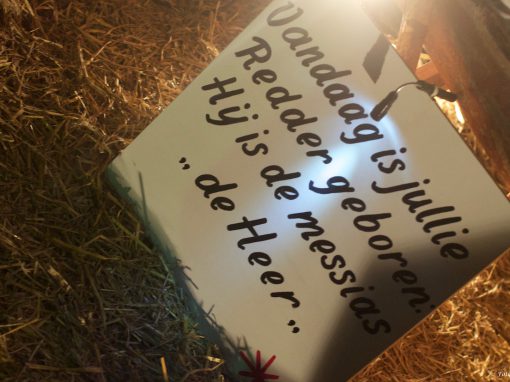 Vandaag is jullie
Redder geboren.
Hij is de messias
„ de Heer „